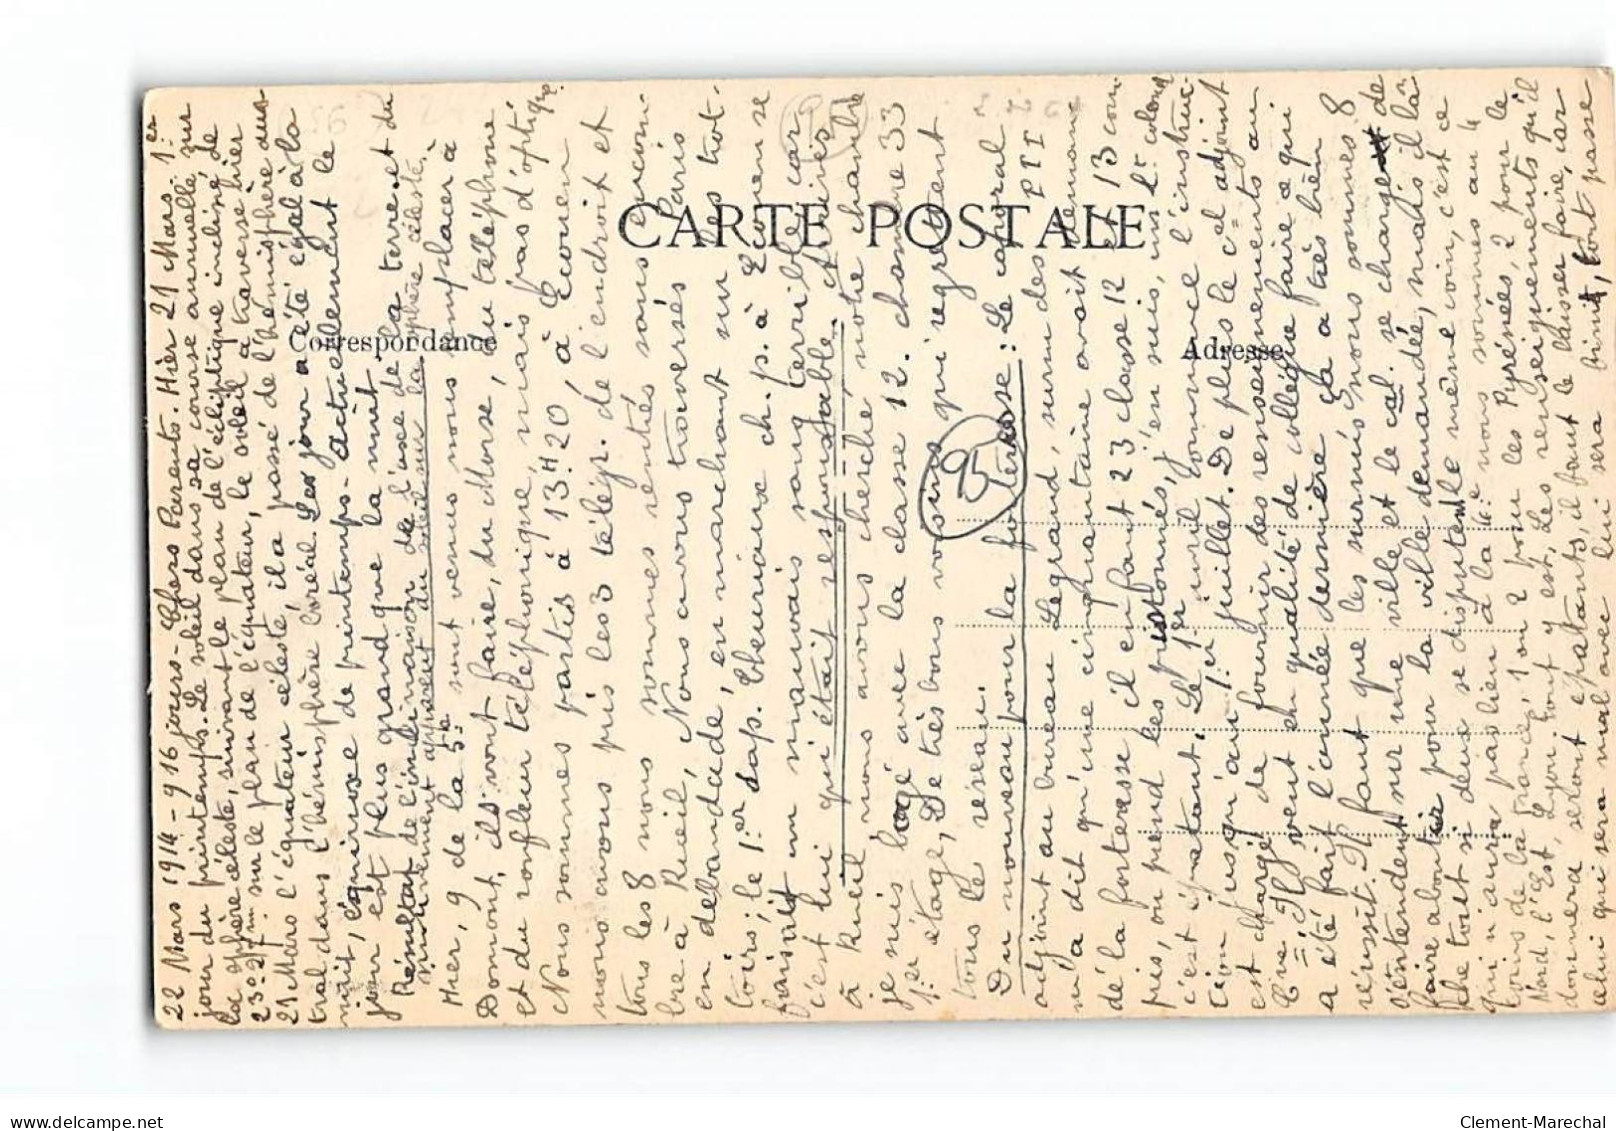 CARTE POSTALE
Correspondance
Adresse
95
22 Mars 1914 - 916 jours - Chers Parents. Hier 21 Mars. 1er
jour du printemps. Le soleil dans sa course annuelle sur
la sphère céleste, suivant le plan de l'écliptique incliné de
23°27m sur le plan de l'équateur, le soleil a traversé hier
21 Mars l'équateur céleste, il a passé de l'hémisphère aus
tral dans l'hémisphère boréal. Les jour a été égal à la
nuit, équinoxe de printemps - actuellement le
jour est plus grand que la nuit
Résultat de l'inclinaison de l'axe de la terre et du
mouvement apparent du soleil sur la sphère céleste.
Hier, 9 de la 5e sont venus nous remplacer à
Domont, ils vont faire, du Morse, du téléphone
et du ronfleur téléphonique, mais pas d'optique.
Nous sommes partis à 13H20, à Écouen
nous avons pris les 3 télégr. de l'endroit et
tous les 8 nous sommes rentrés sans encom-
bre à Rueil, Nous avons traversés Paris
en débandade, en marchant sur les trot-
toirs, le 1er sap. Theuriaux ch. p. à Écouen se
faisait un mauvais sang terrible car
c'est lui qui était responsable. Arrivés
à Rueil nous avons cherché, notre chambre
je suis logé avec la classe 12. chambre 33
1er étage, De très bons voisins qui regrettent
tous le réseau.
Du nouveau pour la forteresse: Le caporal
adjoint au bureau Legrand, surnom des PTT
m'a dit qu'une cinquantaine avait demandé
de la forteresse il en faut 23 classe 12 et 13 com
pris, on prend les pistonnés, j'en suis, un Lt colonel
c'est épatant. Le 1er avril commence l'instruc-
tion jusqu'au 1er juillet. De plus le cel adjoint
est chargé de fournir des renseignements au
Cne: Il veut en qualité de collègue faire ce qui
a été fait l'année dernière ça a très bien
réussit. Il faut que les surnuméraires sommes 8
s'entendent sur une ville et le cal. se charge de
faire aboutir pour la ville demandé, mais il la
che tout si deux se disputent le même coin, c'est ce
qui n'aura pas lieu à la 4e nous sommes au 4
tours de la France, 1 ou 2 pour les Pyrénées, 2 pour le
Nord, l'Est, Lyon tout y est, Les renseignements qu'il
donnera seront épatants, il faut le laisser faire, car
celui qui sera mal avec lui sera finit, tout passe
www.delcampe.net
Clement-Marechal